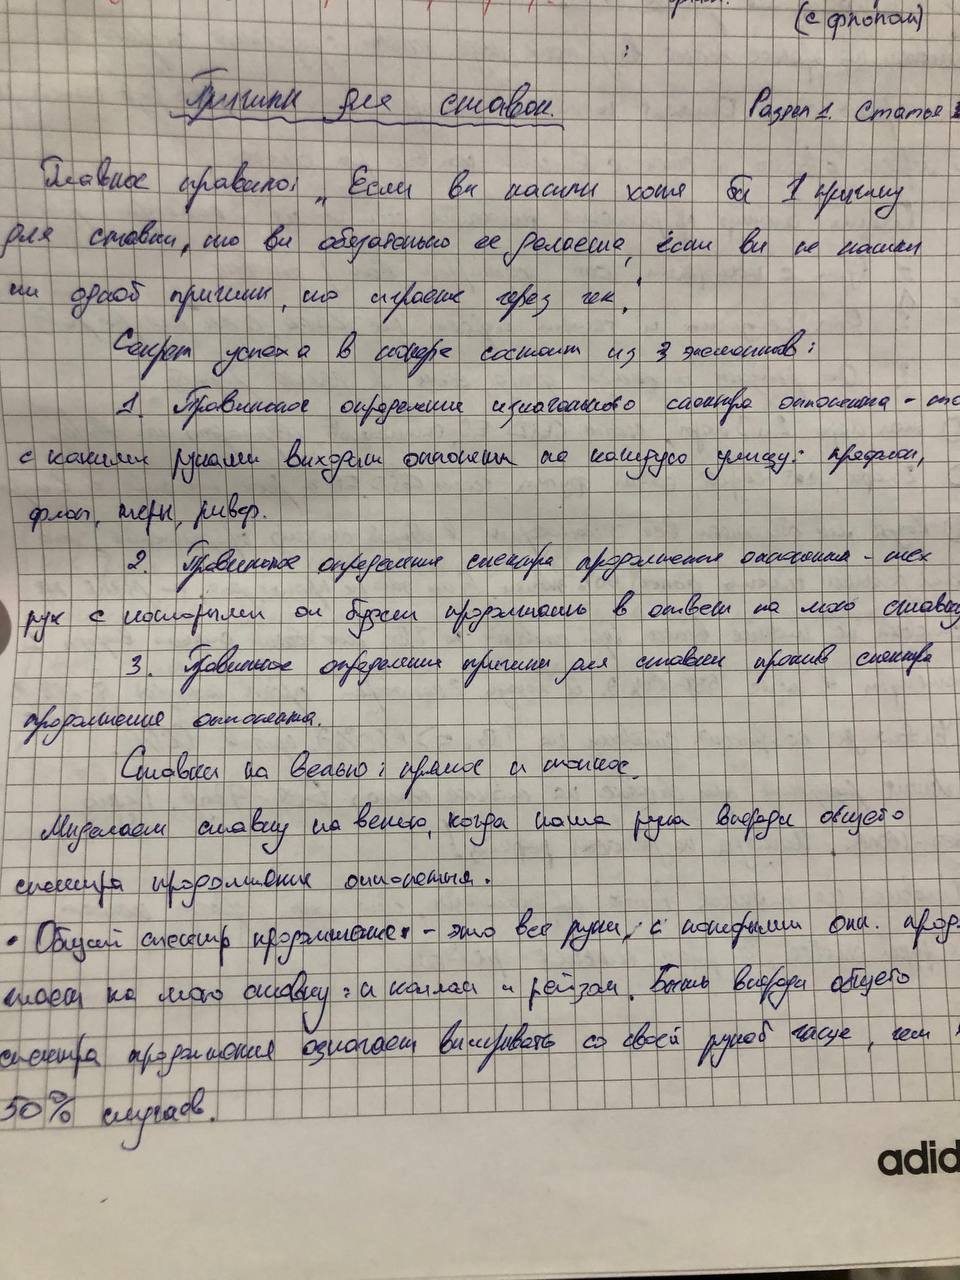 (с флопом)
Причины для ставок.
Раздел 1. Статья
Главное правило: „Если вы нашли хотя бы 1 причину
для ставки, то вы обязательно ее делаете, если вы не нашли
ни одной причины, то играете через чек.“
Секрет успеха в покере состоит из 3 элементов:
1. Правильное определение изначального спектра оппонента - то
с какими руками выходит оппонент на каждую улицу: префлоп,
флоп, терн, ривер.
2. Правильное определение спектра продолжения оппонента - тех
рук с которыми он будет продолжать в ответ на мою ставку
3. Правильное определение причины для ставки против спектра
продолжения оппонента.
Ставки на велью: прямое и тонкое.
Мы делаем ставку на велью, когда наша рука впереди общего
спектра продолжения оппонента.
• Общий спектр продолжения - это все руки, с которыми опп. прод
на мою ставку: и коллом и рейзом. Быть впереди общего
спектра продолжения означает выигрывать со своей рукой чаще, чем
50% случаев.
adid